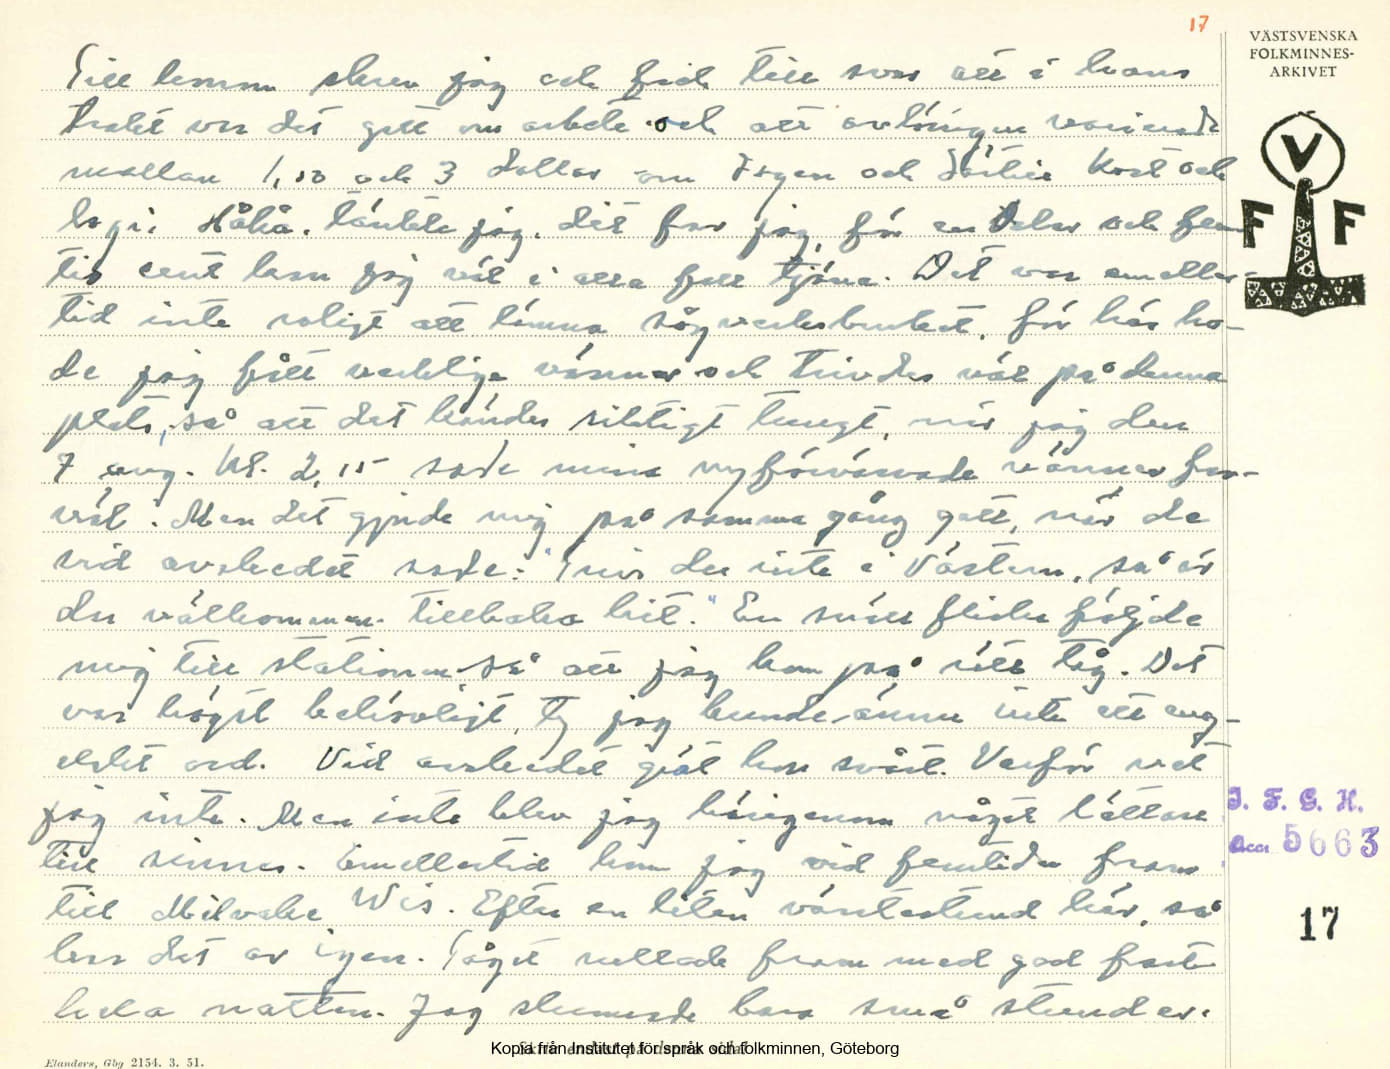 17
VÄSTSVENSKA
FOLKMINNES-
ARKIVET
V
F F
Till honom skrev jag och fick till svar att i hans
trakt var det gott om arbete och att avlöningen varierade
mellan 1,50 och 3 dollar om dagen och därtill kost och
logi. Håhå. tänkte jag. det far jag, för en dolar och fem
tio cent kan jag väl i alla fall tjäna. Det var emeller-
tid inte roligt att lämna sågverksbruket, för här ha-
de jag fått verkliga vänner och trivdes väl på denna
plats, så att det kändes riktigt tungt, när jag den
7 aug. kl. 2,15 sade mina nyförvärvade vänner far-
väl. Men det gjorde mig på samma gång gott, när de
vid avskedet sade: "Trivs du inte i Västern, så är
du välkommen tillbaka hit." En snäll flicka följde
mig till stationen så att jag kom på rätt tåg. Det
var högst behövligt, ty jag kunde ännu inte ett eng-
elskt ord. Vid avskedet grät hon svårt. Varför vet
jag inte. Men inte blev jag härigenom något lättare
till sinnes. Emellertid kom jag vid femtiden fram
till Milvake Wis. Efter en liten väntestund här, så
bar det av igen. Tåget rullade fram med god fart
hela natten. Jag slumrade bara små stunder.
I. F. G. H.
Acc. 5663
17
Elanders, Gbg 2154. 3. 51.
Kopia från Institutet för språk och folkminnen, Göteborg